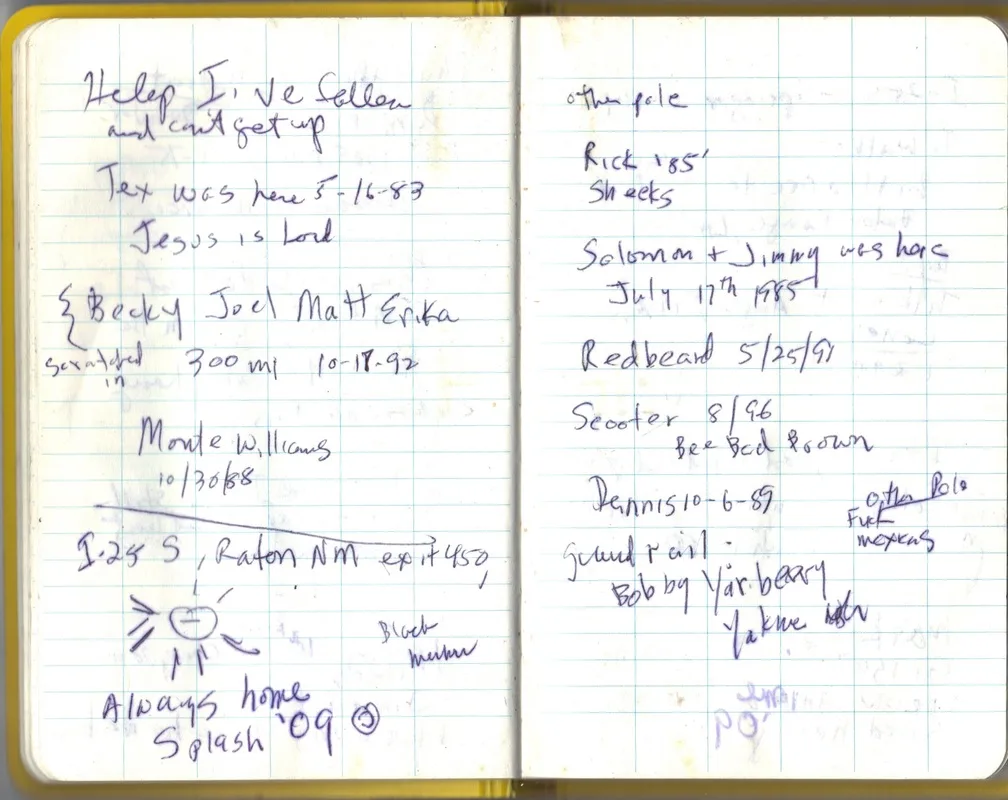 Help I, 've fallen
and can't get up
Tex was here 5-16-83
Jesus is Lord
{ Becky Joel Matt Erika
scratched in 300 mi 10-17-92
Monte Williams
10/30/88
I-25 S, Raton NM exit 450,
Black
marker
Always home
Splash '09
other pole
Rick '85'
Sheeks
Solomon + Jimmy was here
July 17th 1985
Redbeard 5/25/91
Scooter 8/96
Bee Bad Brown
Dennis 10-6-89
Other Pole
Fuck
mexicans
guard rail -
Bobby Yarberry